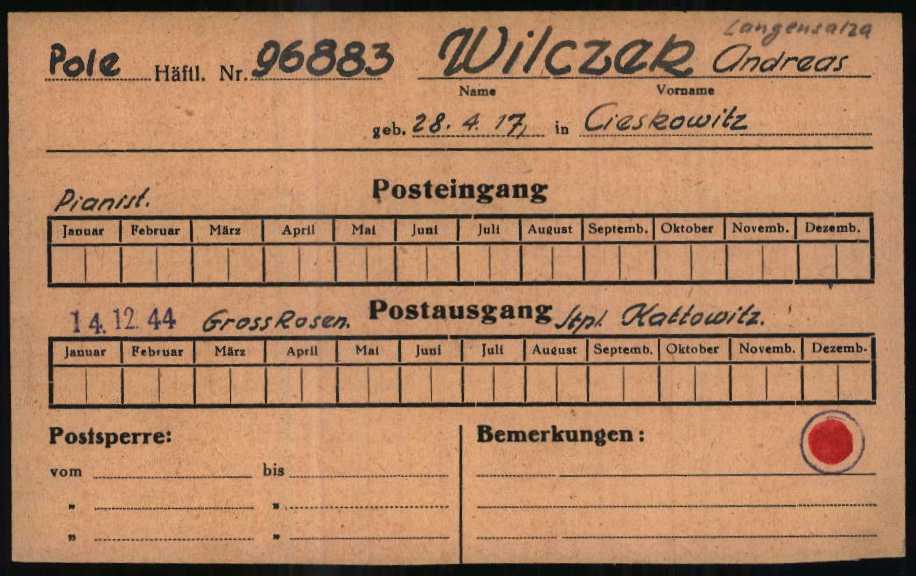 Langensalza
Pole Häftl. Nr. 96883 Wilczek Andreas
Name Vorname
geb. 28. 4. 17, in Cieskowitz
Pianist. Posteingang
Januar Februar März April Mai Juni Juli August Septemb. Oktober Novemb. Dezemb.
14.12.44 GrossRosen. Postausgang Stpl. Kattowitz.
Januar Februar März April Mai Juni Juli August Septemb. Oktober Novemb. Dezemb.
Postsperre: Bemerkungen:
vom bis
" "
" "